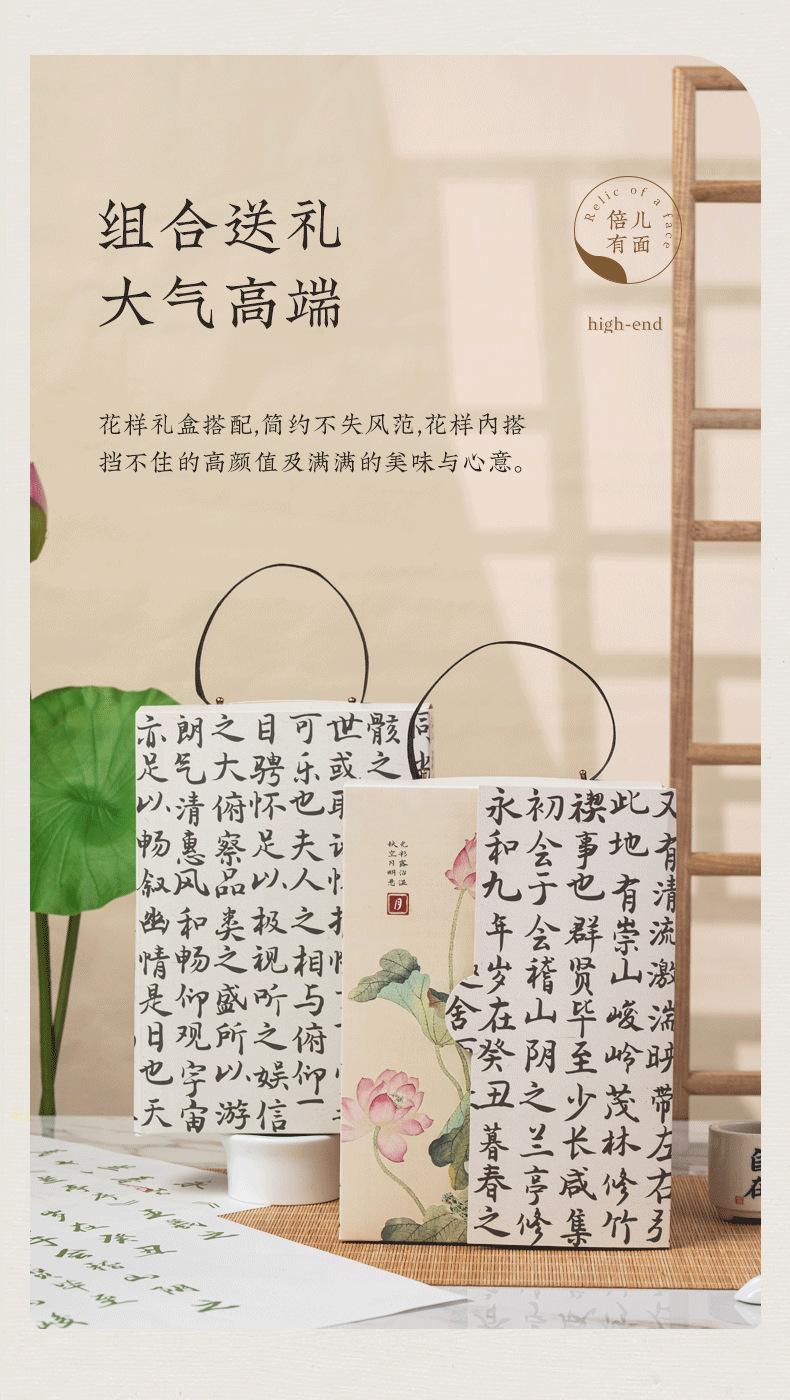 组合送礼
大气高端
Relic of a face
倍儿
有面
high-end
花样礼盒搭配,简约不失风范,花样内搭
挡不住的高颜值及满满的美味与心意。
亦足以畅叙幽情是日也天
朗气清惠风和畅仰观宇宙
之大俯察品类之盛所以游
目骋怀足以极视听之娱信
可乐也夫人之相与俯仰一
世或
骸之
月
舍
永和九年岁在癸丑暮春之
初会于会稽山阴之兰亭修
禊事也群贤毕至少长咸集
此地有崇山峻岭茂林修竹
又有清流激湍映带左右引